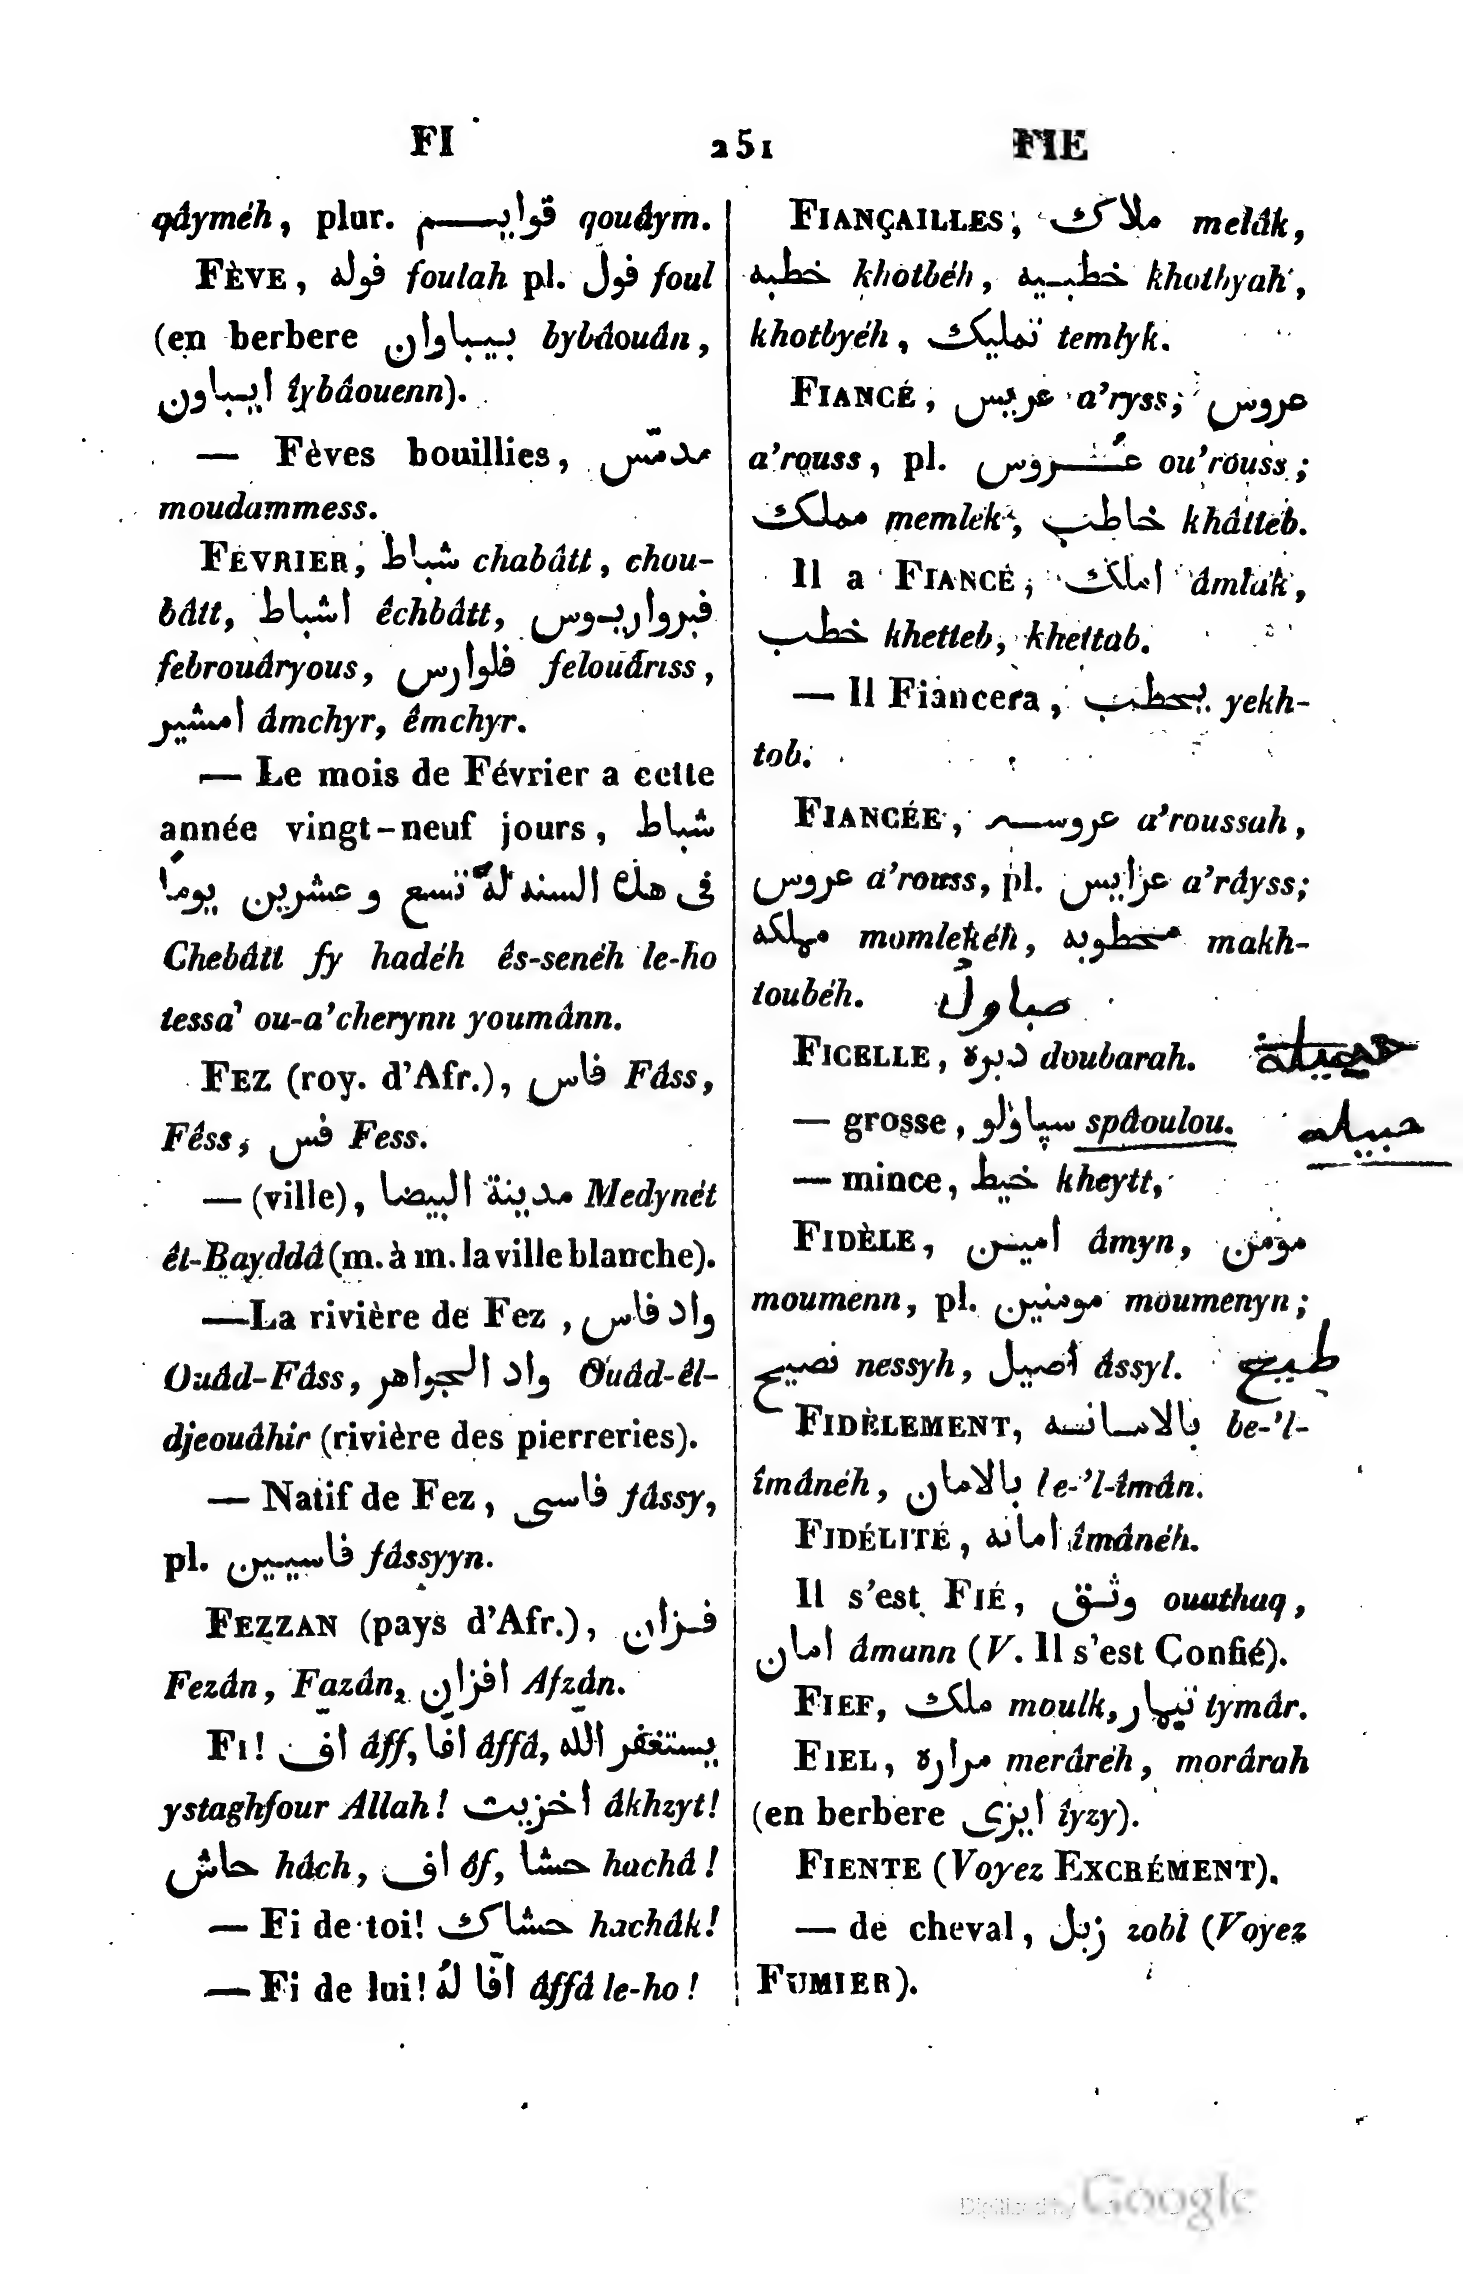 FI 251 FIE
qâyméh, plur. قوايم qouâym.
FÈVE, فوله foulah pl. فول foul
(en berbere بيباوان bybâouân,
ايباون îybâouenn).
— Fèves bouillies, مدمّس
moudammess.
FÉVRIER, شباط chabâtt, chou-
bâtt, اشباط êchbâtt, فبرواريوس
febrouâryous, فلوارس felouârıss,
امشير âmchyr, êmchyr.
— Le mois de Février a cette
année vingt-neuf jours, شباط
فى هذه السنه لهُ تسع و عشرين يوماً
Chebâtt fy hadéh ês-senéh le-ho
tessa' ou-a'cherynn youmânn.
FEZ (roy. d'Afr.), فاس Fâss,
Fêss, فس Fess.
— (ville), مدينة البيضا Medynét
êl-Bayddâ (m. à m. la ville blanche).
— La rivière de Fez, واد فاس
Ouâd-Fâss, واد الجواهر Ouâd-êl-
djeouâhir (rivière des pierreries).
— Natif de Fez, فاسى fâssy,
pl. فاسيين fâssyyn.
FEZZAN (pays d'Afr.), فزان
Fezân, Fazân, افزان Afzân.
FI! اف âff, افّا âffâ, يستغفر الله
ystaghfour Allah! اخزيت âkhzyt!
حاش hâch, اف ôf, حشا hachâ!
— Fi de toi! حشاك hachâk!
— Fi de lui! افّا لهُ âffâ le-ho!
FIANÇAILLES, ملاك melâk,
خطبه khotbéh, خطبيه khotbyah,
khotbyéh, تمليك temlyk.
FIANCÉ, عريس a'ryss; عروس
a'rouss, pl. عُروس ou'rouss;
مملك memlek, خاطب khâtteb.
Il a FIANCÉ, املك âmlak,
خطب khetteb, khettab.
— Il Fiancera, يخطب yekh-
tob.
FIANCÉE, عروسه a'roussah,
عروس a'rouss, pl. عرايس a'râyss;
مملكه momlekéh, مخطوبه makh-
toubéh. صباول
FICELLE, دبره doubarah.
— grosse, سپاولو spâoulou. حبيله
— mince, خيط kheytt,
FIDÈLE, امين âmyn, مومن
moumenn, pl. مومنين moumenyn;
نصيح nessyh, اصيل âssyl.
FIDÈLEMENT, بالامانه be-'l-
îmânéh, بالامان le-'l-îmân.
FIDÉLITÉ, امانه îmânéh.
Il s'est FIÉ, وثق ouathaq,
امان âmann (V. Il s'est Confié).
FIEF, ملك moulk, تيمار tymâr.
FIEL, مراره merâréh, morârah
(en berbere ايزى îyzy).
FIENTE (Voyez EXCRÉMENT).
— de cheval, زبل zobl (Voyez
FUMIER).
Digitized by Google